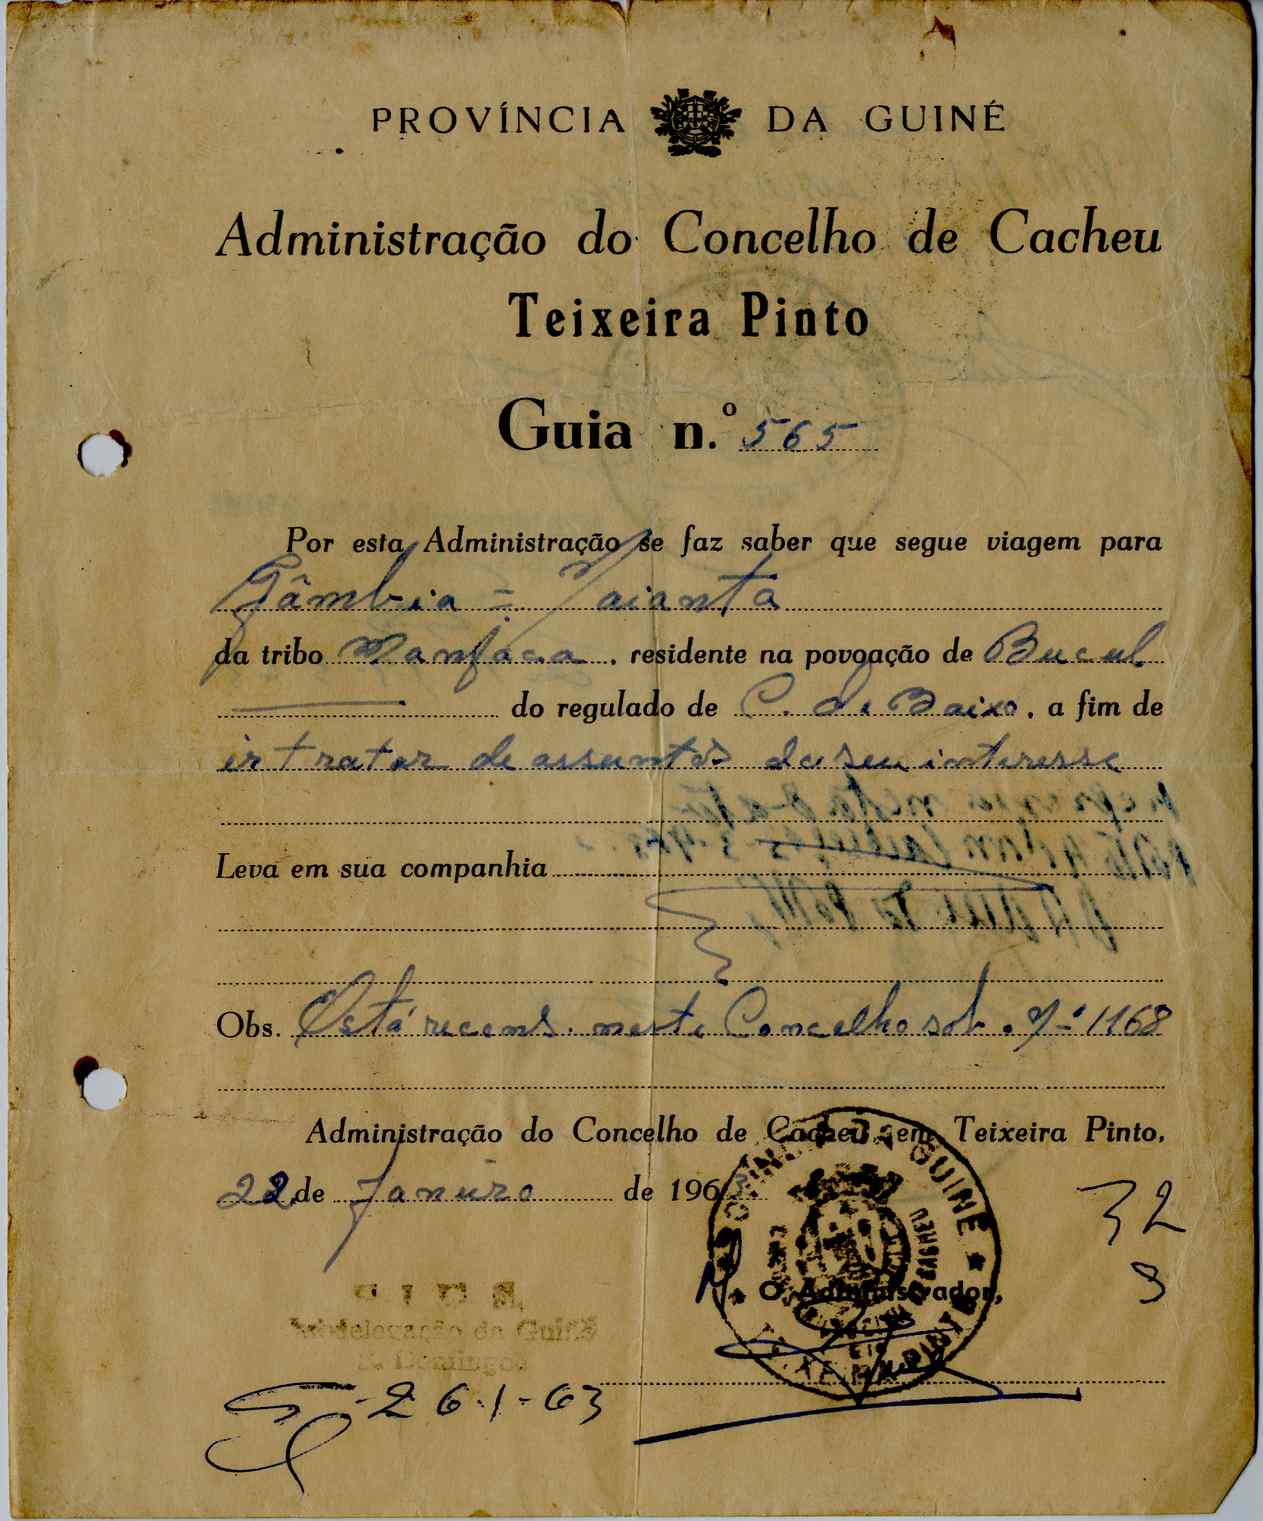 PROVÍNCIA DA GUINÉ
Administração do Concelho de Cacheu
Teixeira Pinto
Guia n.º 565
Por esta Administração se faz saber que segue viagem para
Gâmbia =
da tribo Manjaca, residente na povoação de Bucul
do regulado de C. de Baixo, a fim de
ir tratar de assuntos de seu interesse
Leva em sua companhia
Obs. Está recens. neste Concelho sob. Nº 1168
Administração do Concelho de Cacheu, em Teixeira Pinto,
22 de Janeiro de 1963
32
O Administrador,
3
P. I. D. E.
Subdelegação da Guiné
S. Domingos
26-1-63